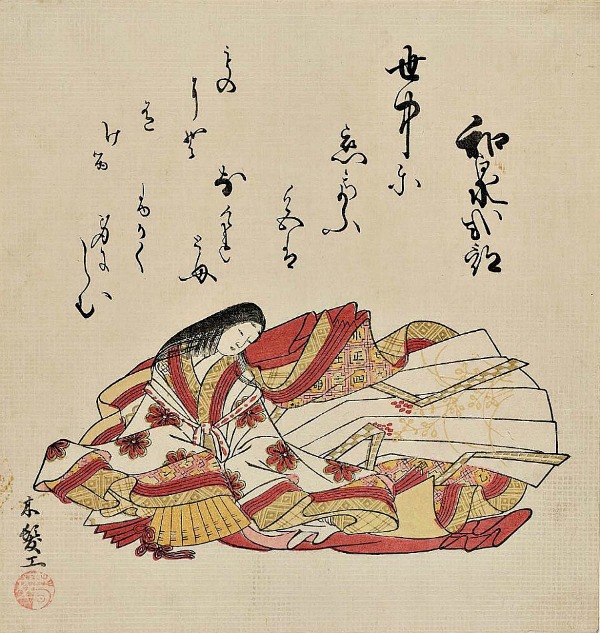 和泉式部
世中尓
恋てふ
色は
なけれとも
ふかく
身にしむ
もの
にそ
有
ける
木髪工